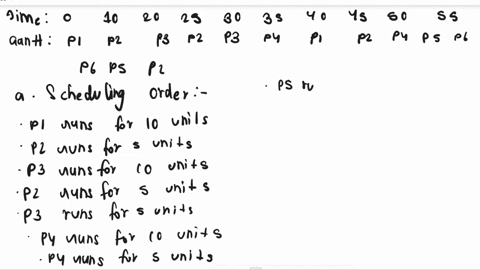 Time: 0 10 20 25 30 35 40 45 50 55
Gantt: P1 P2 P3 P2 P3 P4 P1 P2 P4 P5 P6
P6 P5 P2
a. Scheduling order:-
· P1 runs for 10 units
· P2 runs for 5 units
· P3 runs for 10 units
· P2 runs for 5 units
· P3 runs for 5 units
· P4 runs for 10 units
· P4 runs for 5 units
· P5 ru